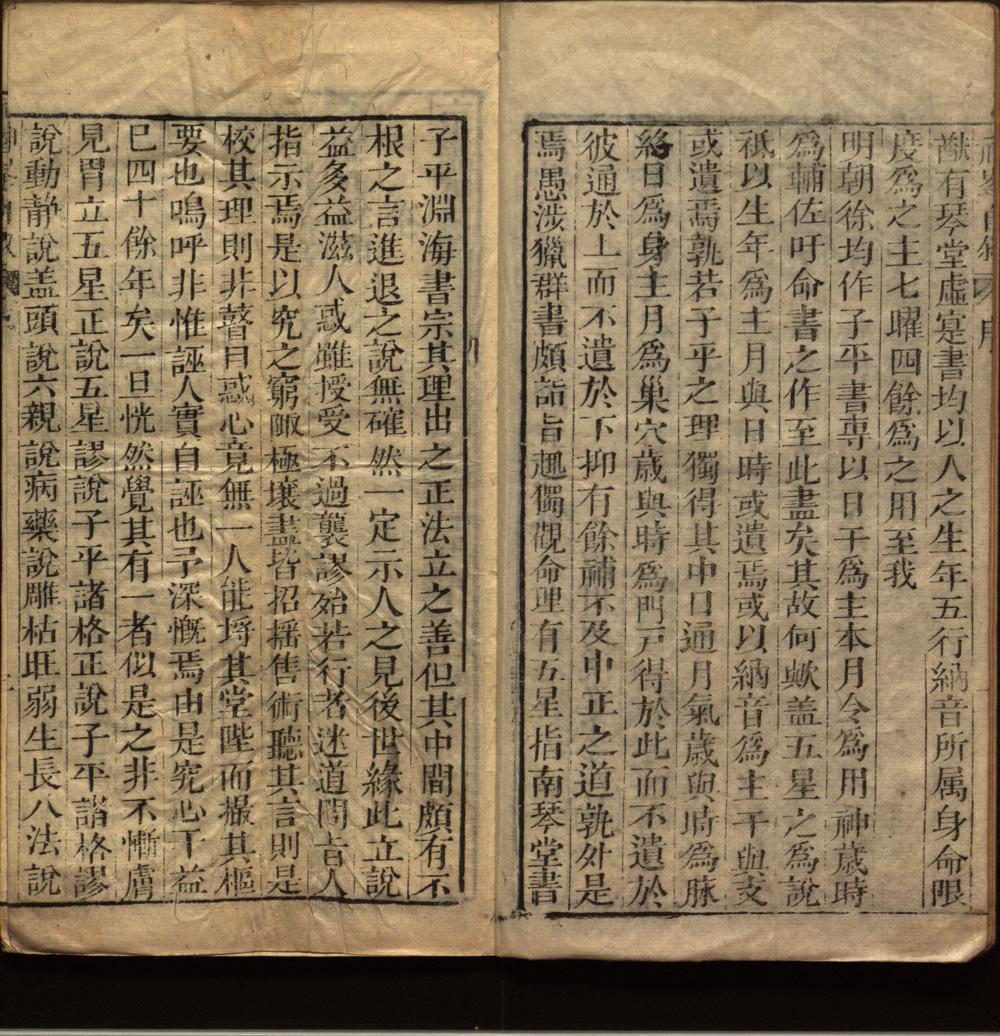 猷有琴堂虛寔書均以人之生年五行納音所属身命限
度爲之主七曜四餘爲之用至我
明朝徐均作子平書專以日干爲主本月令爲用神歲時
爲輔佐吁命書之作至此盡矣其故何歟盖五星之爲說
祇以生年爲主月與日時或遺焉或以納音爲主干與支
或遺焉孰若子平之理獨得其中日通月氣歲與時爲脉
絡日爲身主月爲巢穴歲與時爲門戸得於此而不遺於
彼通於上而不遺於下抑有餘補不及中正之道孰外是
焉愚涉獵群書頗詣旨趣獨觀命理有五星指南琴堂書
子平淵海書宗其理出之正法立之善但其中間頗有不
根之言進退之說無確然一定示人之見後世緣此立說
益多益滋人惑雖授受不過襲謬始若行者迷道問盲人
指示焉是以究之窮陬極壤盡皆招摇售術聽其言則是
校其理則非瞽目惑心竟無一人能埓其堂陛而撮其樞
要也鳴呼非惟誣人實自誣也予深慨焉由是究心于益
巳四十餘年矣一旦恍然覺其有一者似是之非不慚膚
見胃立五星正說五星謬說子平諸格正說子平諸格謬
說動静說盖頭說六親說病藥說雕枯旺弱生長八法說